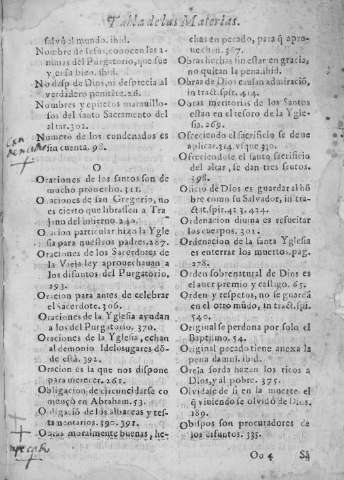 Tabla de las Materias.
salvò al mundo. ibid.
Nombre de Iesus, conocen las a-
nimas del Purgatorio, que fue
y es su bien. ibid.
No desp de Dios, ni desprecia al
verdadero penitente. 26.
Nombres y epitetos marauillo-
sos del santo Sacramento del
altar. 302.
Numero de los condenados es
sin cuenta. 98.
O
Oraciones de los santos son de
mucho prouecho. 311.
Oraciones de san Gregorio, no
es cierto que librassen a Tra
jano del infierno. 240.
Oracion particular hizo la Ygle
sia para nuestros padres. 207.
Oraciones de los Sacerdotes de
la Vieja ley aprouechauan a
los difuntos del Purgatorio.
293.
Oracion para antes de celebrar
el sacerdote. 306.
Oraciones de la Yglesia ayudan
a los del Purgatorio. 370.
Oraciones de la Yglesia, echan
al demonio de los lugares dõ-
de està. 392.
Oracion es la que nos dispone
para merecer. 261.
Obligacion de circuncidarse co
mençò en Abraham. 53.
Obligaciõ de los albaceas y tes-
tamentarios. 390. 391.
Obras moralmente buenas, he-
chas en pecado, para q̃ apro-
uechan. 367.
Obras hechas sin estar en gracia,
no quitan la pena. ibid.
Obras de Dios causan admiraciõ,
in tract. spit. 414.
Obras meritorias de los Santos
estan en el tesoro de la Ygle-
sia. 269.
Ofreciendo el sacrificio se deue
aplicar. 314. vsque 330.
Ofreciendote el santo sacrificio
del altar, se dan tres frutos.
298.
Oficio de Dios es guardar al hõ
bre como su Saluador, in tra-
ct. spit. 413. 424.
Ordenacion diuina es resucitar
los cuerpos. 301.
Ordenacion de la santa Yglesia
es enterrar los muertos, pag.
278.
Orden sobrenatural de Dios es
el auer premio y castigo. 65.
Orden y respetos, no se guarda
en el otro mũdo, in tract. spi.
540.
Original se perdona por solo el
Baptismo. 54.
Original pecado tiene anexa la
pena damni. ibid.
Oreja sorda hazen los ricos a
Dios, y al pobre. 375.
Olvidase si en la muerte el
q̃ viuiendo se oluidò de Dios.
189.
Obispos son procuradores de
los difuntos. 335.
Oo 4
Sã